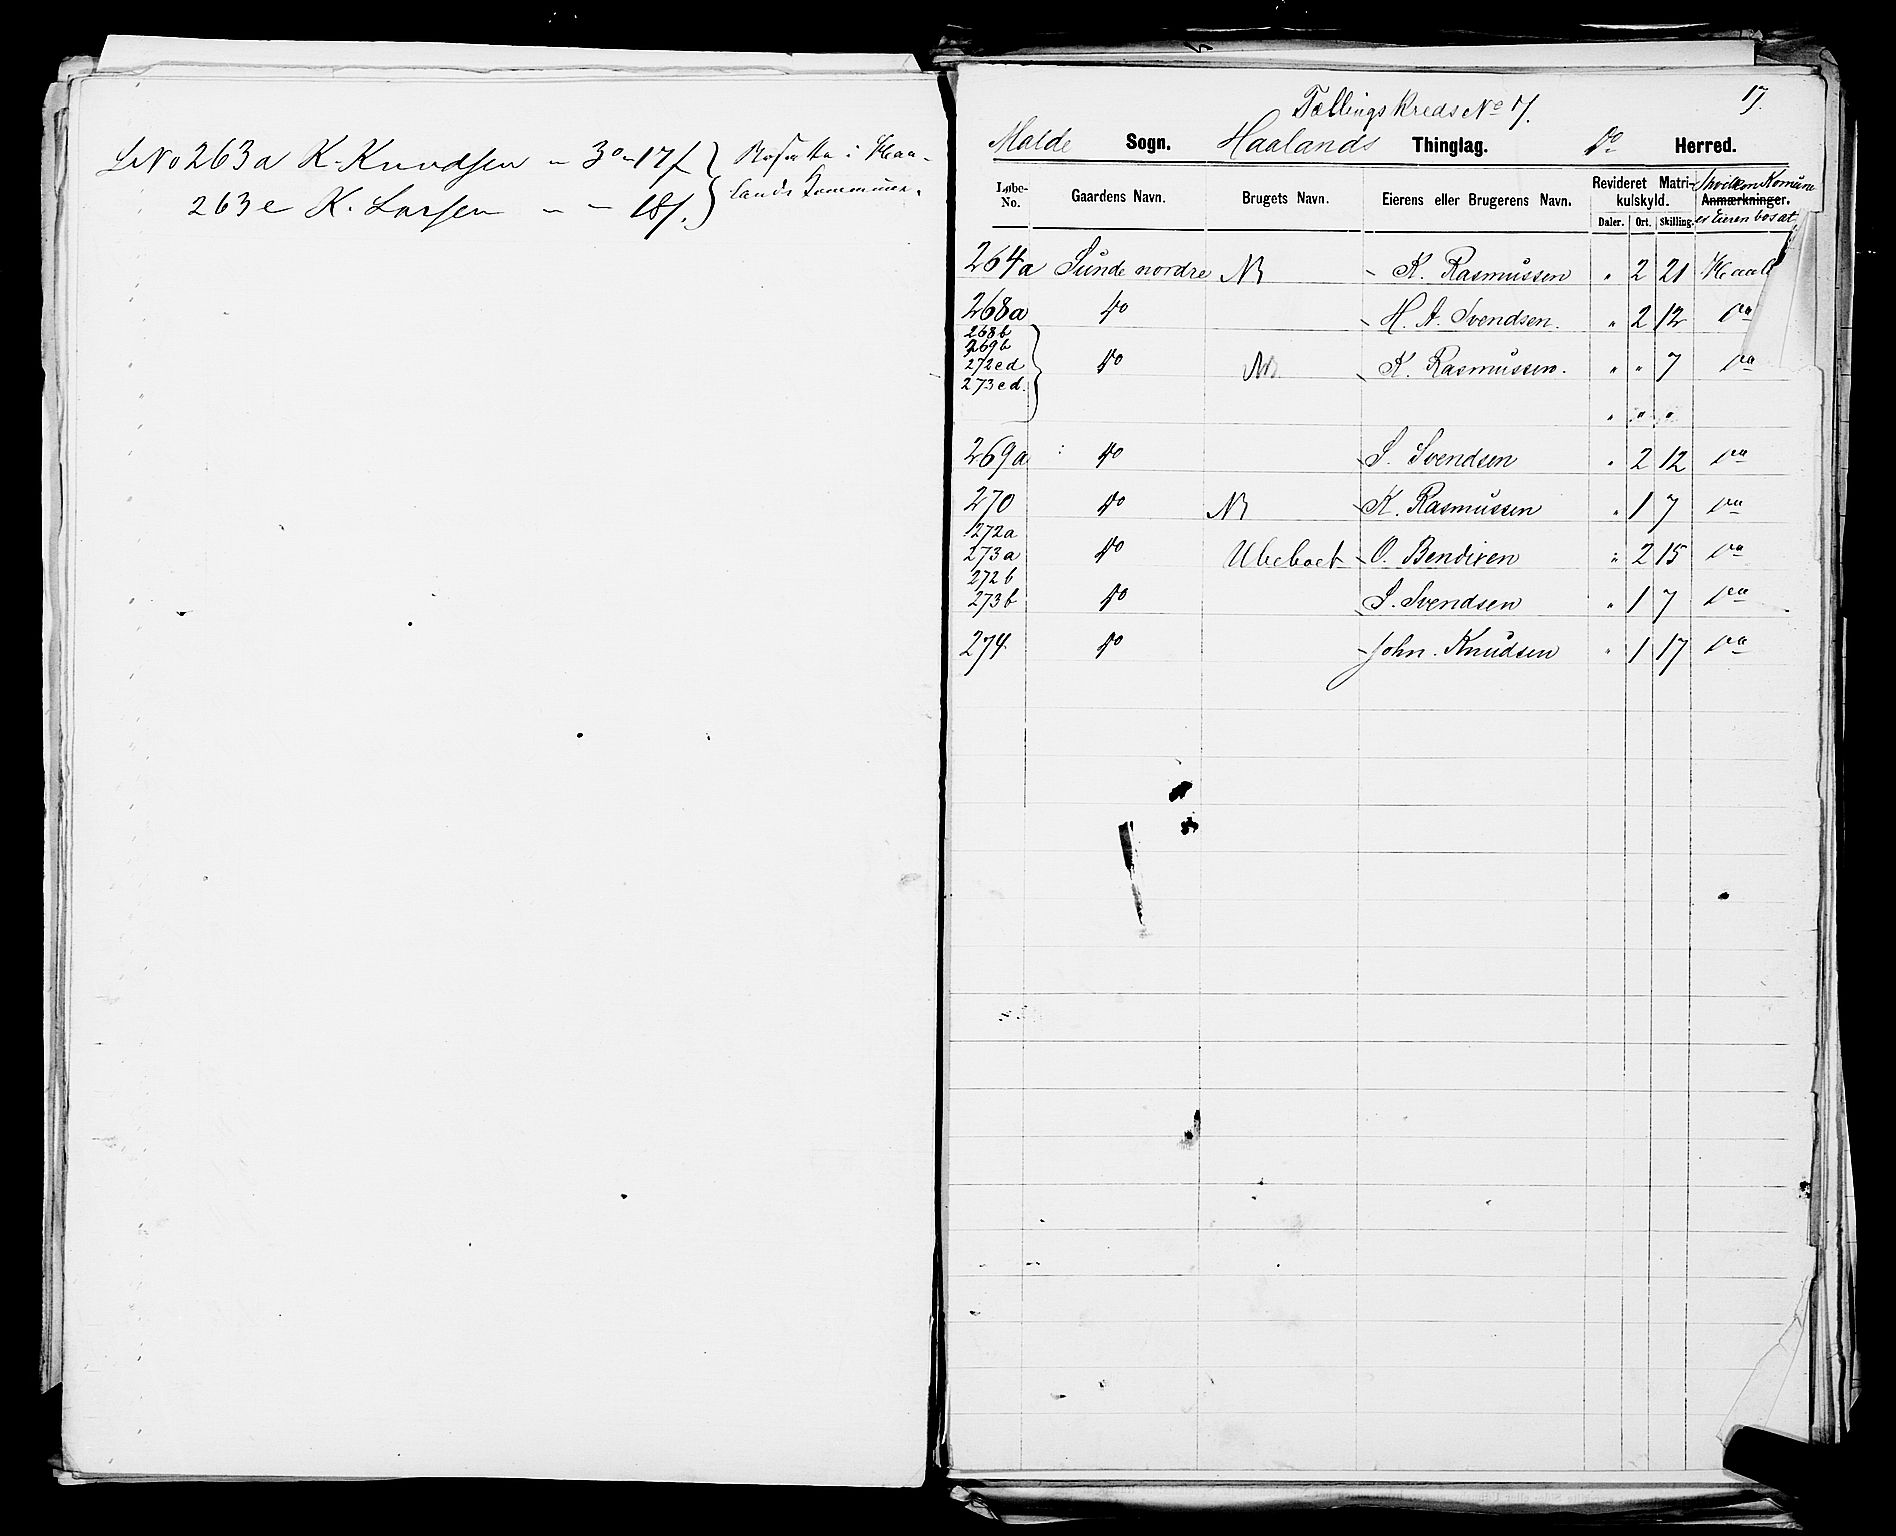 LNo 263a K. Knudsen - 3°-17 /. Bosatte i Haa-
263e K. Larsen - - 18 /. lands Kommune.
17.
Tællingskreds No 17.
Malde Sogn. Haalands Thinglag. Do Herred.
Løbe-No. Gaardens Navn. Brugets Navn. Eierens eller Brugerens Navn. Revideret Matrikulskyld. Daler. Ort. Skilling. Anmærkninger. I hvilken Komune er Eieren bosat
264a Sunde nordre NB - K. Rasmussen " 2 21 Haal
268a Do - H. A. Svendsen. " 2 12 Do
268b
269b
272cd Do NB. - K. Rasmussen. " " 7 Do
273cd.
" " "
269a Do - S. Svendsen " 2 12 Do
270 Do NB - K. Rasmussen " 1 7 Do
272a
273a Do - O. Bendixen " 2 15 Do
272b
273b Do - S. Svendsen " 1 7 Do
274 Do - John. Knudsen " 1 17 Do